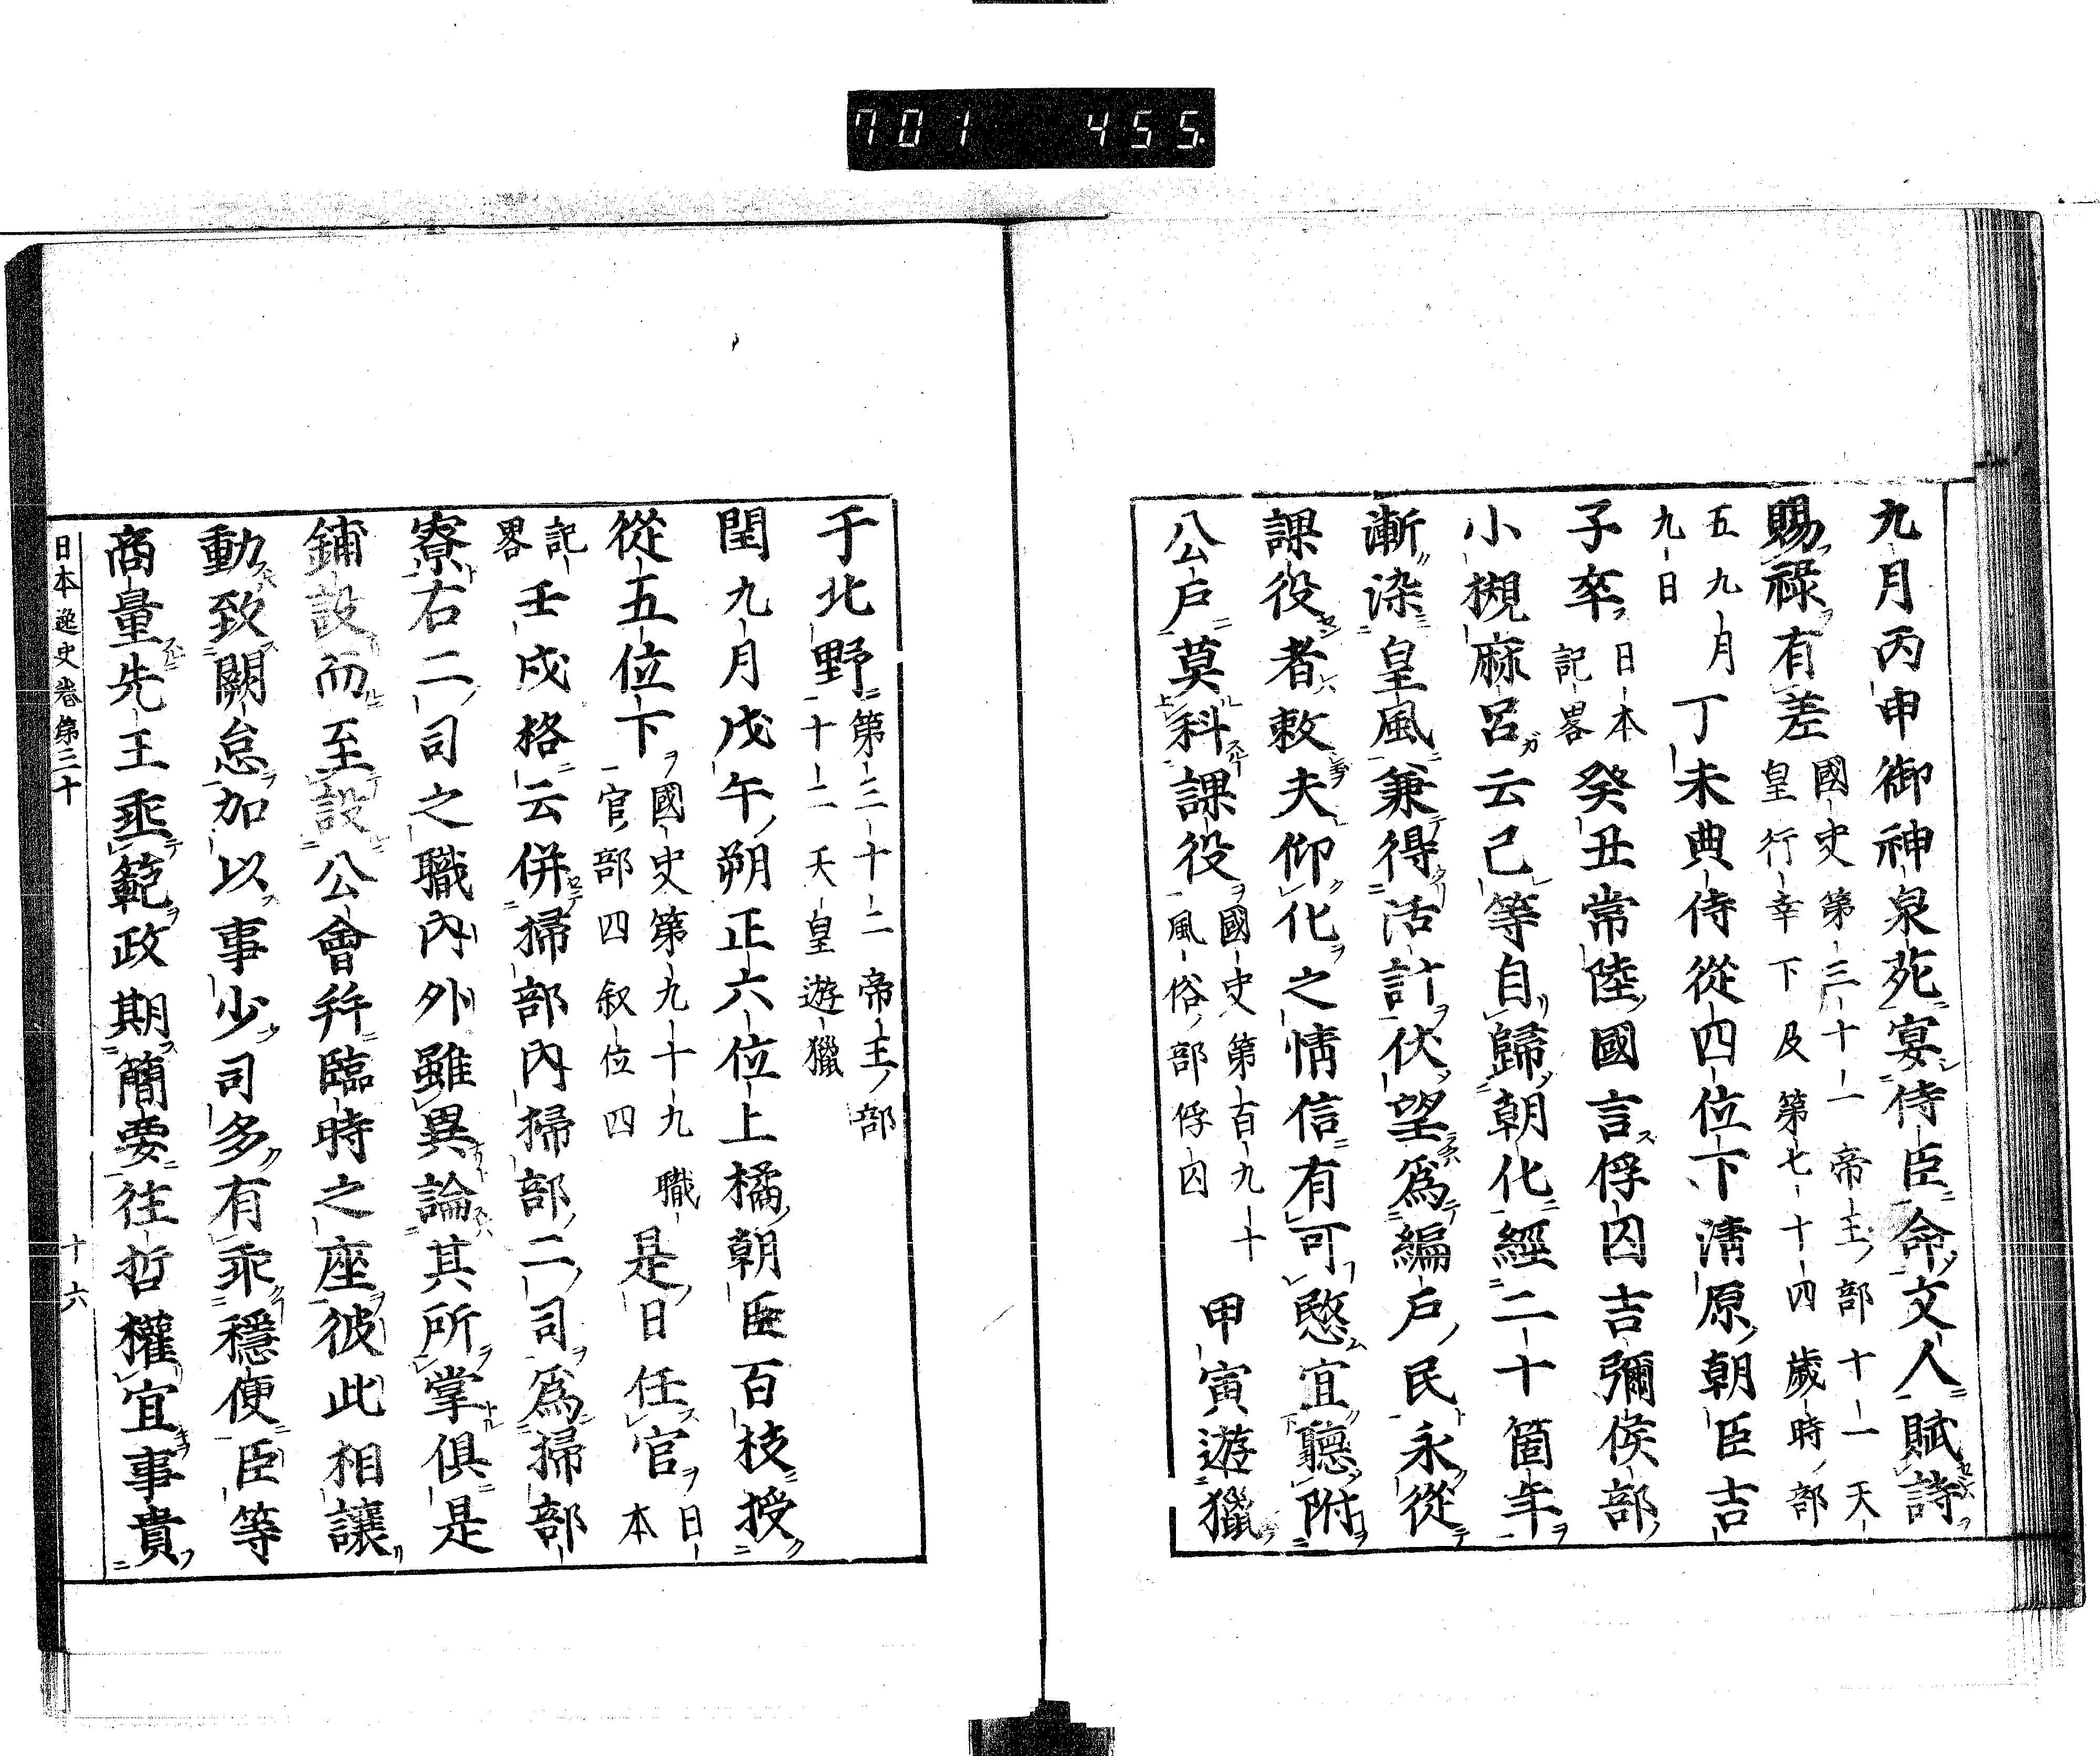 701 455
九月丙申御神泉苑宴侍臣命文人賦詩
賜祿有差國史第三十一帝王部十一天
皇行幸下及第七十四歲時部
五九月
九日丁未典侍從四位下淸原朝臣吉
子卒日本
記畧癸丑常陸國言俘囚吉彌侯部
小槻麻呂云己等自歸朝化經二十箇年
漸染皇風兼得活計伏望爲編戶民永從
課役者敕夫仰化之情信有可愍宜聽附
公戶莫科課役國史第百九十
風俗部俘囚甲寅遊獵
于北野第三十二帝王部
十二天皇遊獵
閏九月戊午朔正六位上橘朝臣百枝授
從五位下國史第九十九職
官部四叙位四是日任官日
本
記
畧壬戌格云併掃部內掃部二司爲掃部
寮右二司之職內外雖異論其所掌俱是
鋪設而至設公會幷臨時之座彼此相讓
動致闕怠加以事少司多有乖穩便臣等
商量先王垂範政期簡要往哲權宜事貴
日本逸史卷第三十 十六